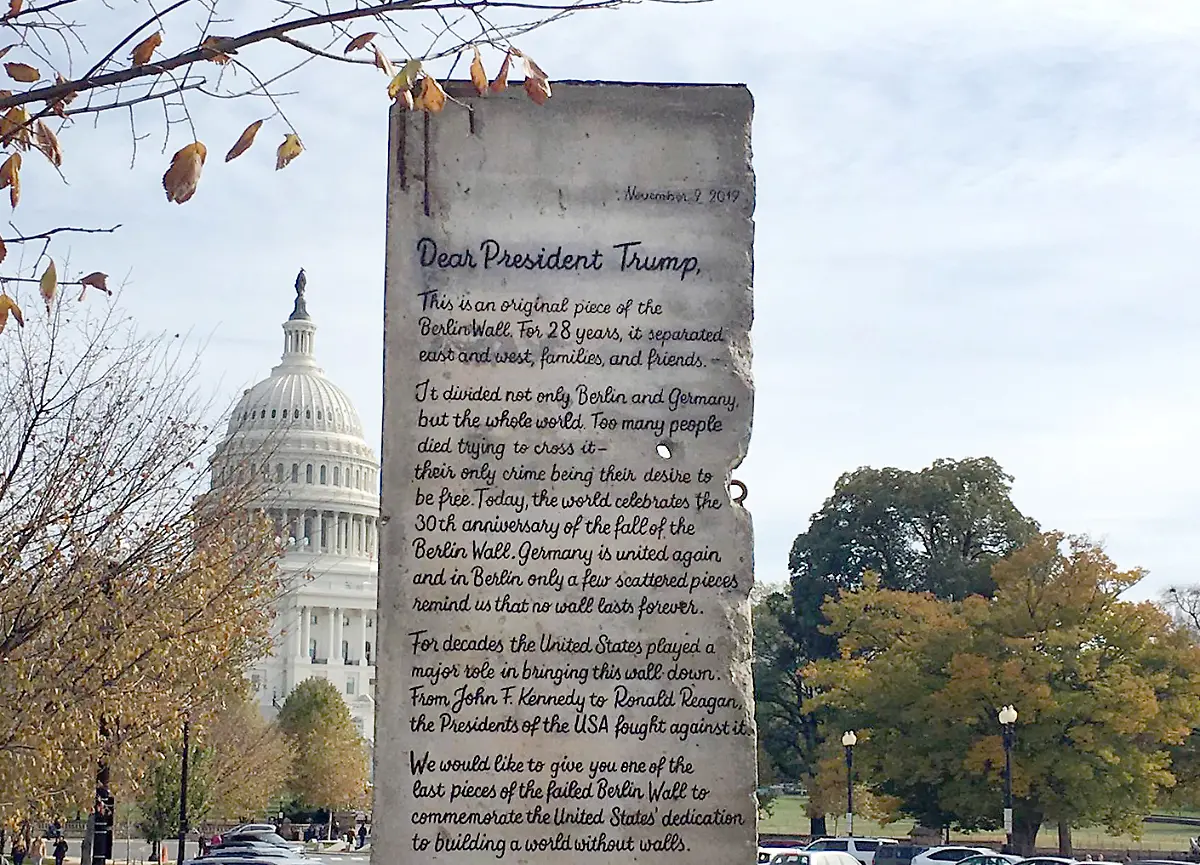 November 9 2019
Dear President Trump,
This is an original piece of the
Berlin Wall. For 28 years, it separated
east and west, families, and friends.
It divided not only Berlin and Germany,
but the whole world. Too many people
died trying to cross it–
their only crime being their desire to
be free. Today, the world celebrates the
30th anniversary of the fall of the
Berlin Wall. Germany is united again
and in Berlin only a few scattered pieces
remind us that no wall lasts forever.
For decades the United States played a
major role in bringing this wall down.
From John F. Kennedy to Ronald Reagan,
the Presidents of the USA fought against it.
We would like to give you one of the
last pieces of the failed Berlin Wall to
commemorate the United States' dedication
to building a world without walls.